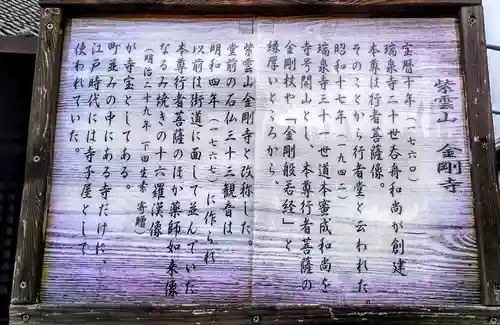 紫雲山 金剛寺
宝暦十年(一七六〇)
瑞泉寺二十世呑舟和尚が創建
本尊は行者菩薩像。
そのことから行者堂と云われた。
昭和十七年(一九四二)
瑞泉寺三十一世道本蜜成和尚を
寺号開山とし、本尊行者菩薩の
金剛杖や『金剛般若経』と
縁厚いところから、
紫雲山金剛寺と改称した。
堂前の石仏三十三観音は
明和四年(一七六七)に作られ
以前は街道に面して並んでいた
本尊行者菩薩のほか薬師如来像
なるみ焼きの十六羅漢像
(明治二十九年 下田生素 寄贈)
が寺宝としてある。
町並みの中にある寺だけに、
江戸時代には寺子屋として
使われていた。